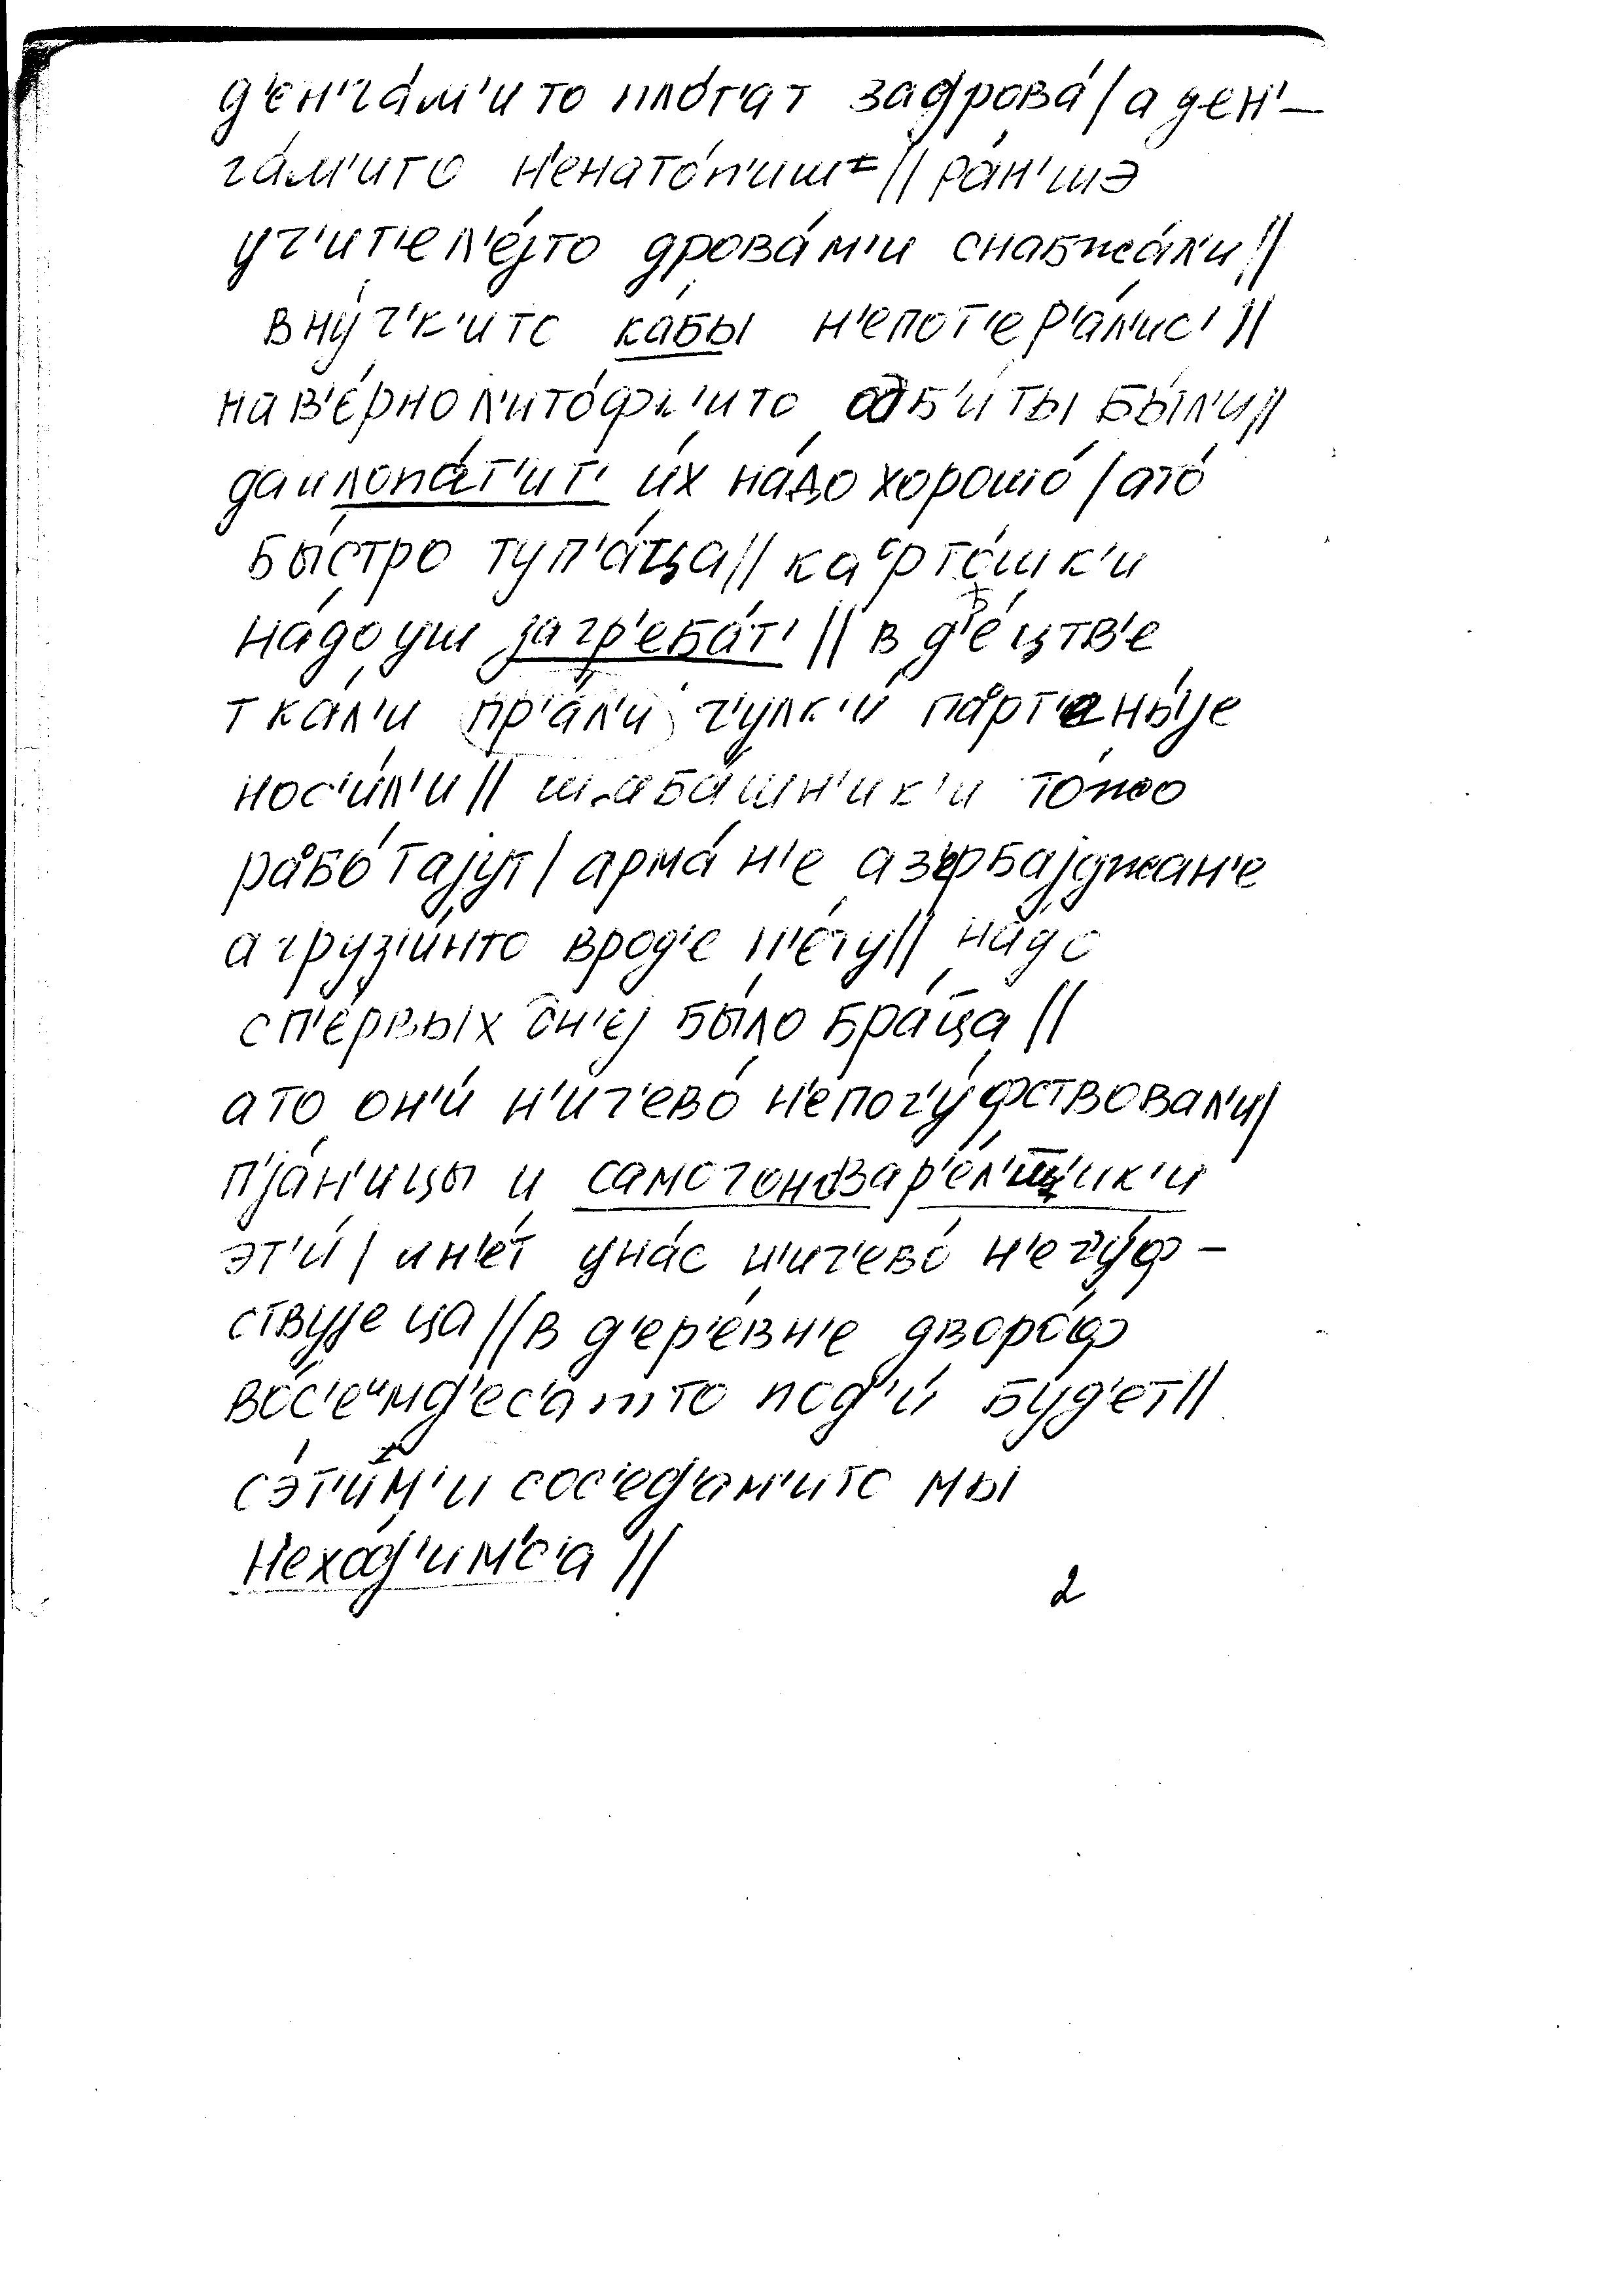 д'ен'га́м'ито пло́т'ат задрова́/а ден'-
га́м'ито н'енато́п'иш // ра́н'шэ
уч'ит'ел'е́јто дрова́м'и снабжа́л'и //
вну́ч'к'ито ка́бы н'епот'ер'а́л'ис' //
нав'е́рно л'ито́фк'ито одб'и́ты бы́л'и //
даилопа́т'ит' и́х на́до хорошо́ /ато́
бы́стро туп'а́ца // картошк'и
на́до уш загр'еба́т' // в д'е́цтв'е
тка́л'и пр'а́л'и ч'улк'и́ парт'аны́је
нос'и́л'и // шаба́шн'ик'и то́жо
рабо́тајут / арма́н'е азърбајджан'е
агрузи́нто врод'е н'е́ту // на́до
сп'е́рвых дн'еј бы́ло бра́ца //
ато он'и́ н'ич'ево́ н'епоч'у́фствовал'и/
п'јáн'ицы и самогоновар'е́л'щик'и
эт'и́ / ин'е́т уна́с н'ич'ево́ н'еч'у́ф-
ствује ца // в д'ер'е́вн'е дворо́ф
во́с'емд'ес'атто под'и́ бу́д'ет //
сэ́т'им'и сос'ед'ам'ито мы
неха́д'имс'а //
2